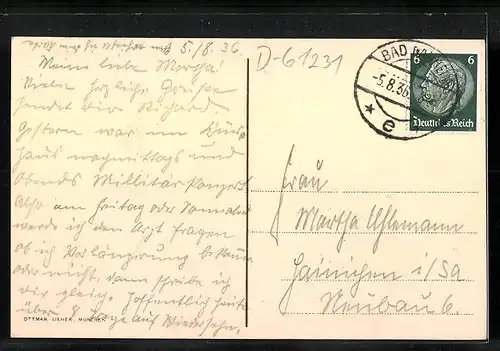 5./8. 36.
Meine liebe Martha!
Viele herzliche Grüße
sendet dir Richard
Gestern war im Kur-
haus nachmittags und
abends Militärkonzert
Also am Freitag oder Sonnabend
werde ich den Arzt fragen
ob ich Verlängerung bekomme
oder nicht, dann schreibe ich
dir gleich. Hoffentlich heute
über 8 Tage auf Wiedersehn.
OTTMAR ZIEHER, MÜNCHEN
D-61231
BAD
-5.8.36
* e
6 6
Deutsches Reich
Frau
Martha Uhlemann
Hainichen i/Sa
Neubau 6.